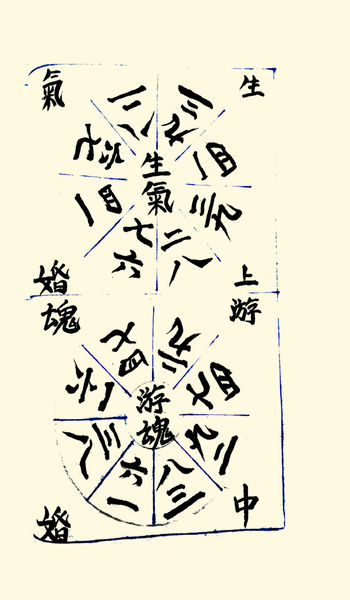 生
氣
三九
二八
一四
七六
生氣
三九
一四
二八
七六
上
婚
游
魂
二九
七四
七四
一六
游魂
九二
三八
八三
六一
中
婚